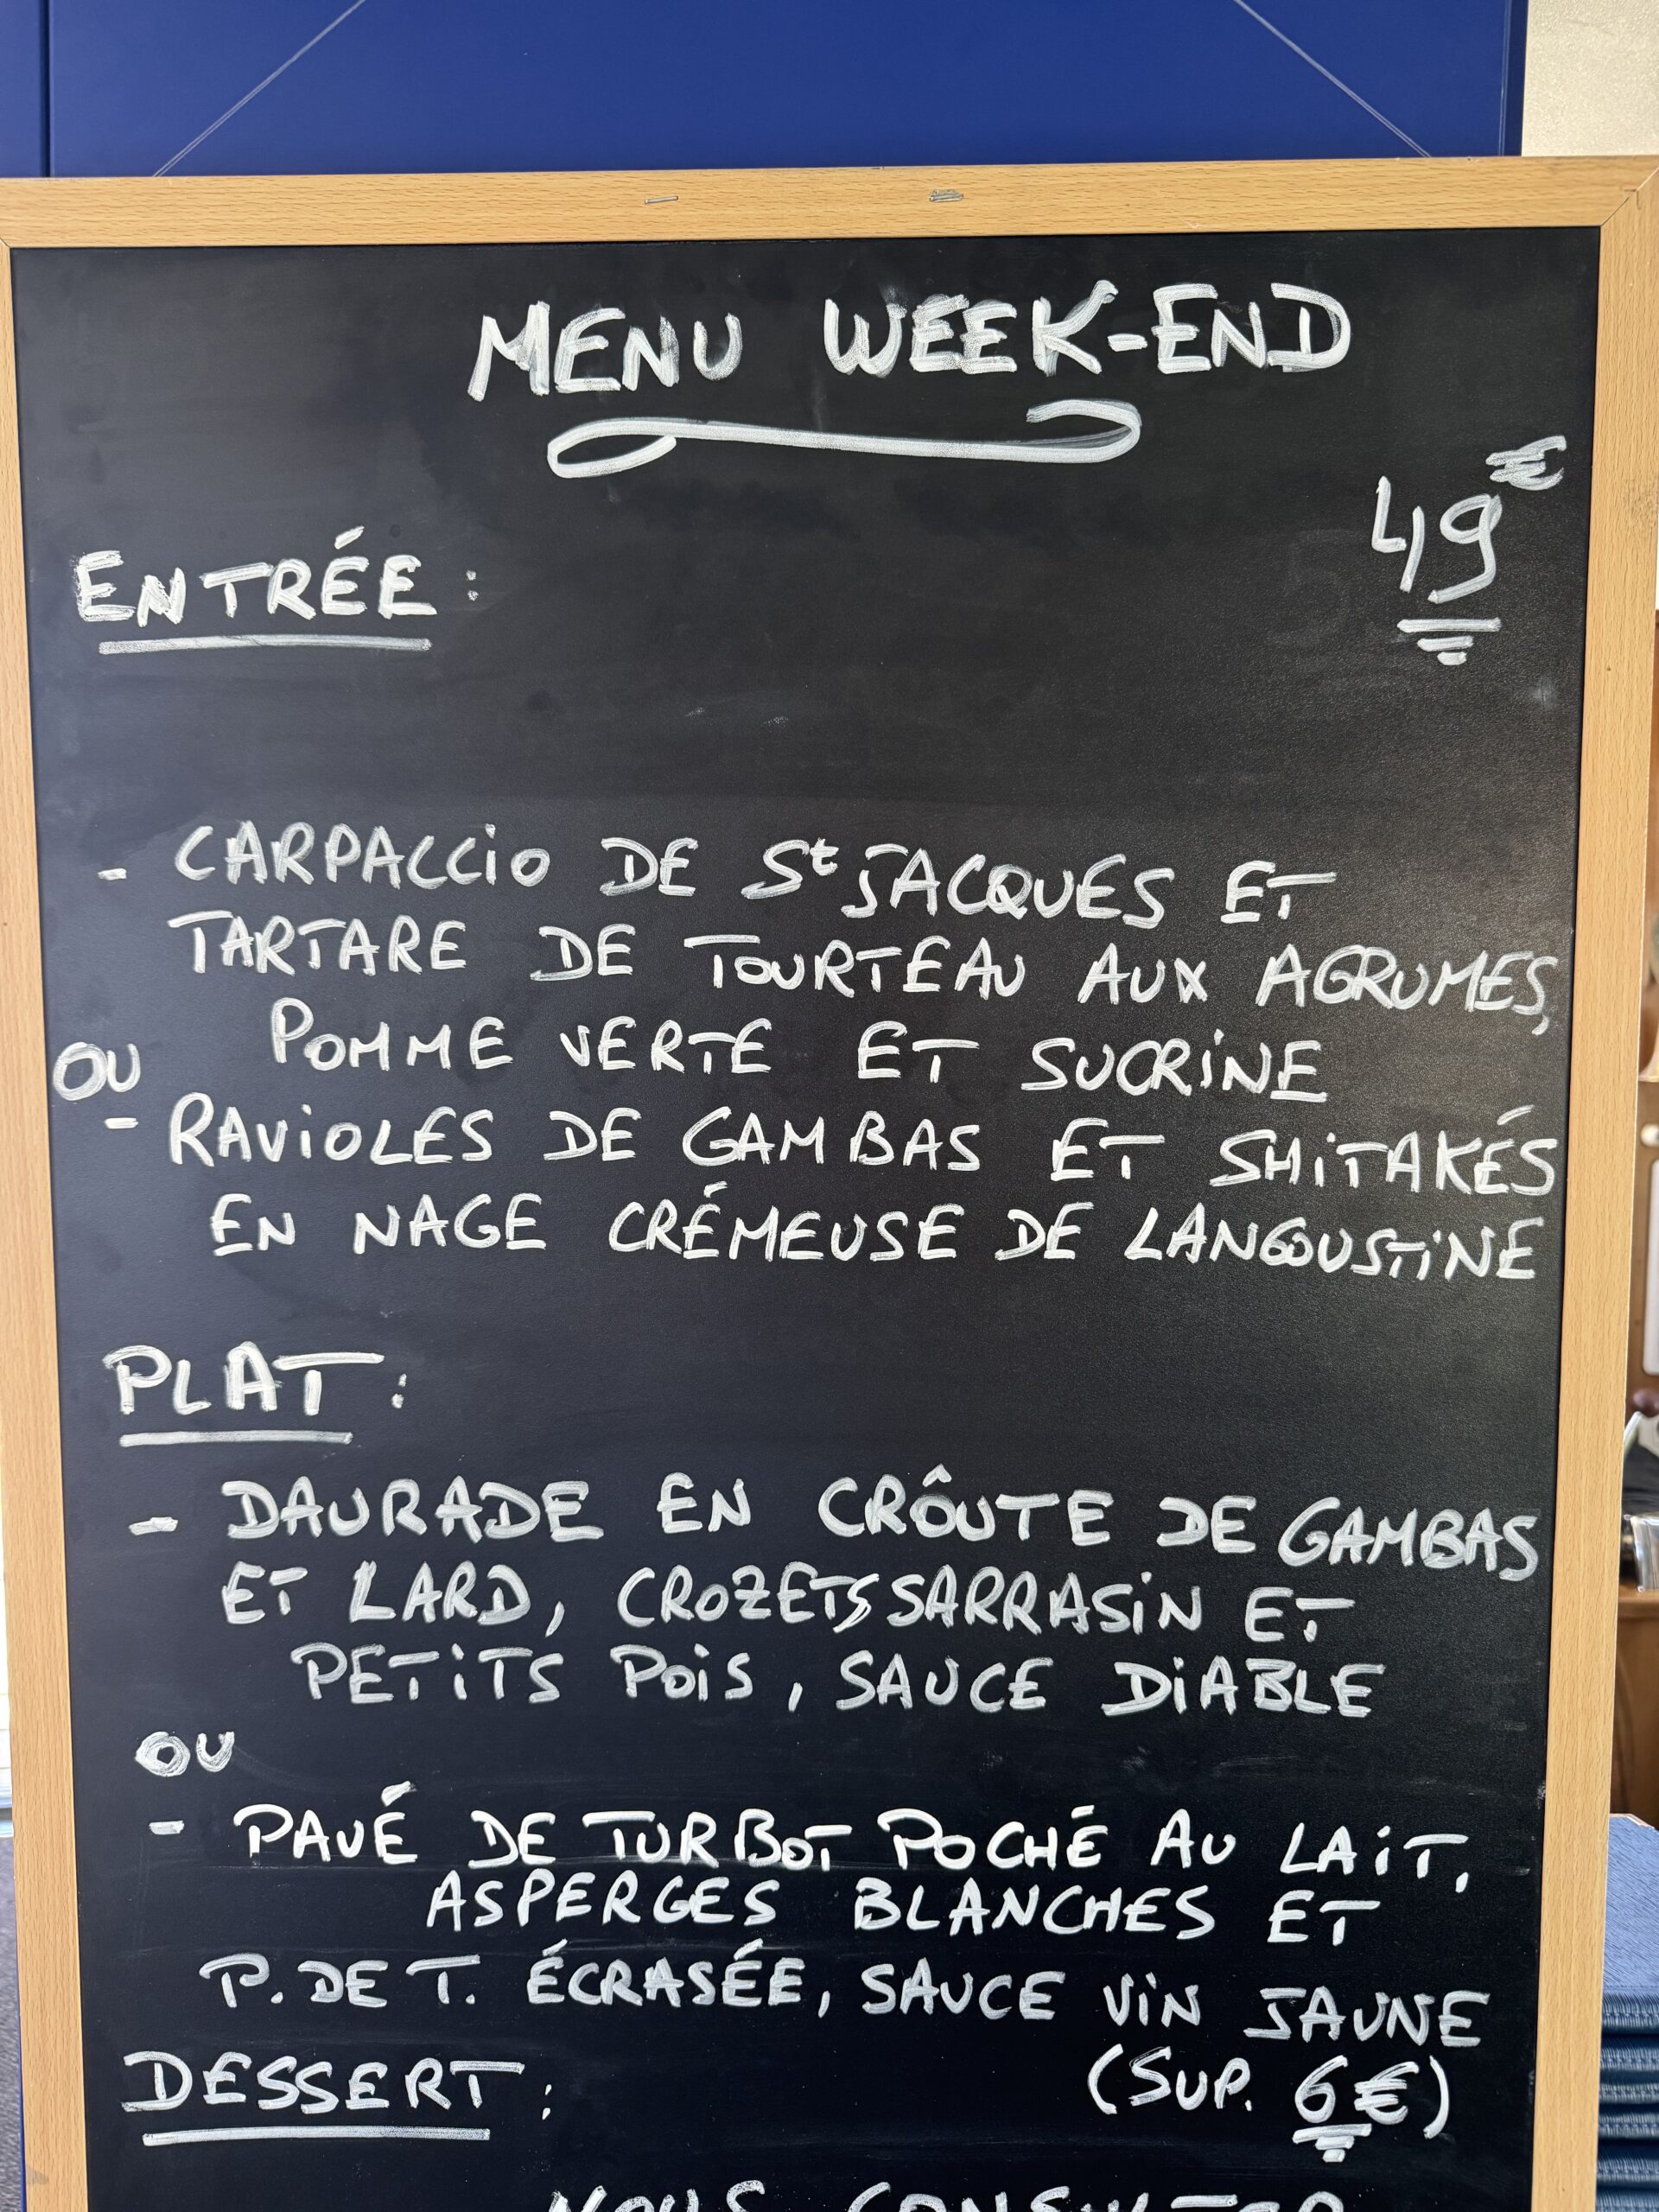 MENU WEEK-END
49€
ENTRÉE :
- CARPACCIO DE St JACQUES ET
TARTARE DE TOURTEAU AUX AGRUMES,
POMME VERTE ET SUCRINE
OU
- RAVIOLES DE GAMBAS ET SHITAKÉS
EN NAGE CRÉMEUSE DE LANGOUSTINE
PLAT :
- DAURADE EN CRÔUTE DE GAMBAS
ET LARD, CROZETS SARRASIN ET
PETITS POIS, SAUCE DIABLE
OU
- PAVÉ DE TURBOT POCHÉ AU LAIT,
ASPERGES BLANCHES ET
P. DE T. ÉCRASÉE, SAUCE VIN JAUNE
(SUP. 6€)
DESSERT :
NOUS CONSULTER